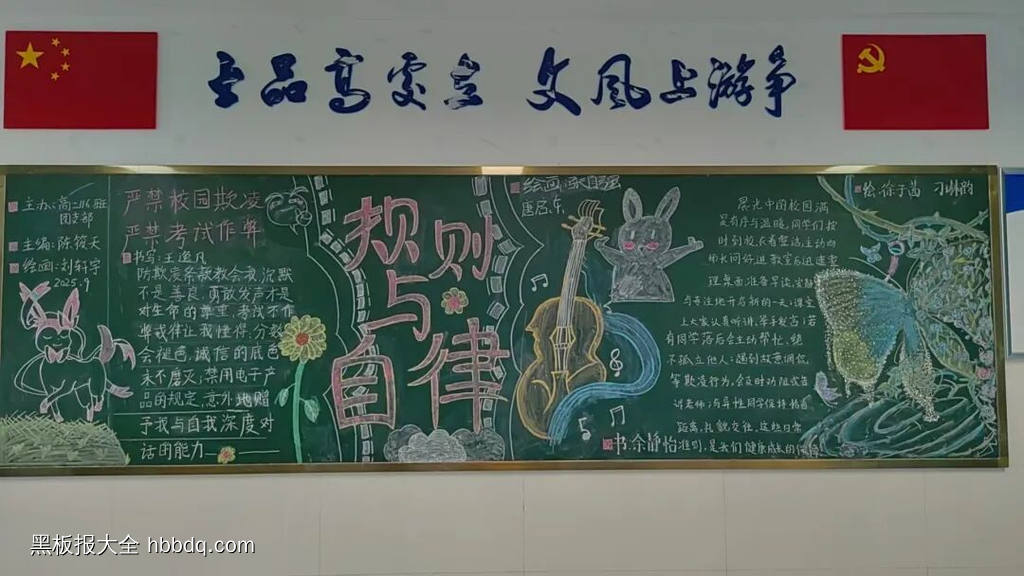 士品高处立 文风上游争
主办:高二116班
团支部
主编:陈筱天
绘画:刘轩宇
2025.9
严禁校园欺凌
严禁考试作弊
书写:王逸凡
防欺凌条款教会我,沉默
不是善良,勇敢发声才是
对生命的尊重,考试不作
弊戒律让我懂得,分数
会褪色,诚信的底色
永不磨灭;禁用电子产
品的规定,意外地赐
予我与自我深度对
话的能力——
规则
与
自律
绘画:
唐启东
绘:徐子茜
晨光中的校园满
是有序与温暖,同学们按
时到校,衣着整洁,主动向
师长问好,进教室后迅速整
理桌面,准备早读,安静
与专注地开启新的一天,课堂
上大家认真听讲,举手发言;若
有同学落后会主动帮忙,绝
不孤立他人;遇到故意调侃,
等欺凌行为,会及时劝阻或告
诉老师;与异性同学保持恰当
距离,礼貌交往,这些日常
准则,是我们健康成长的保障
书:余静怡
黑板报大全 hbbdq.com